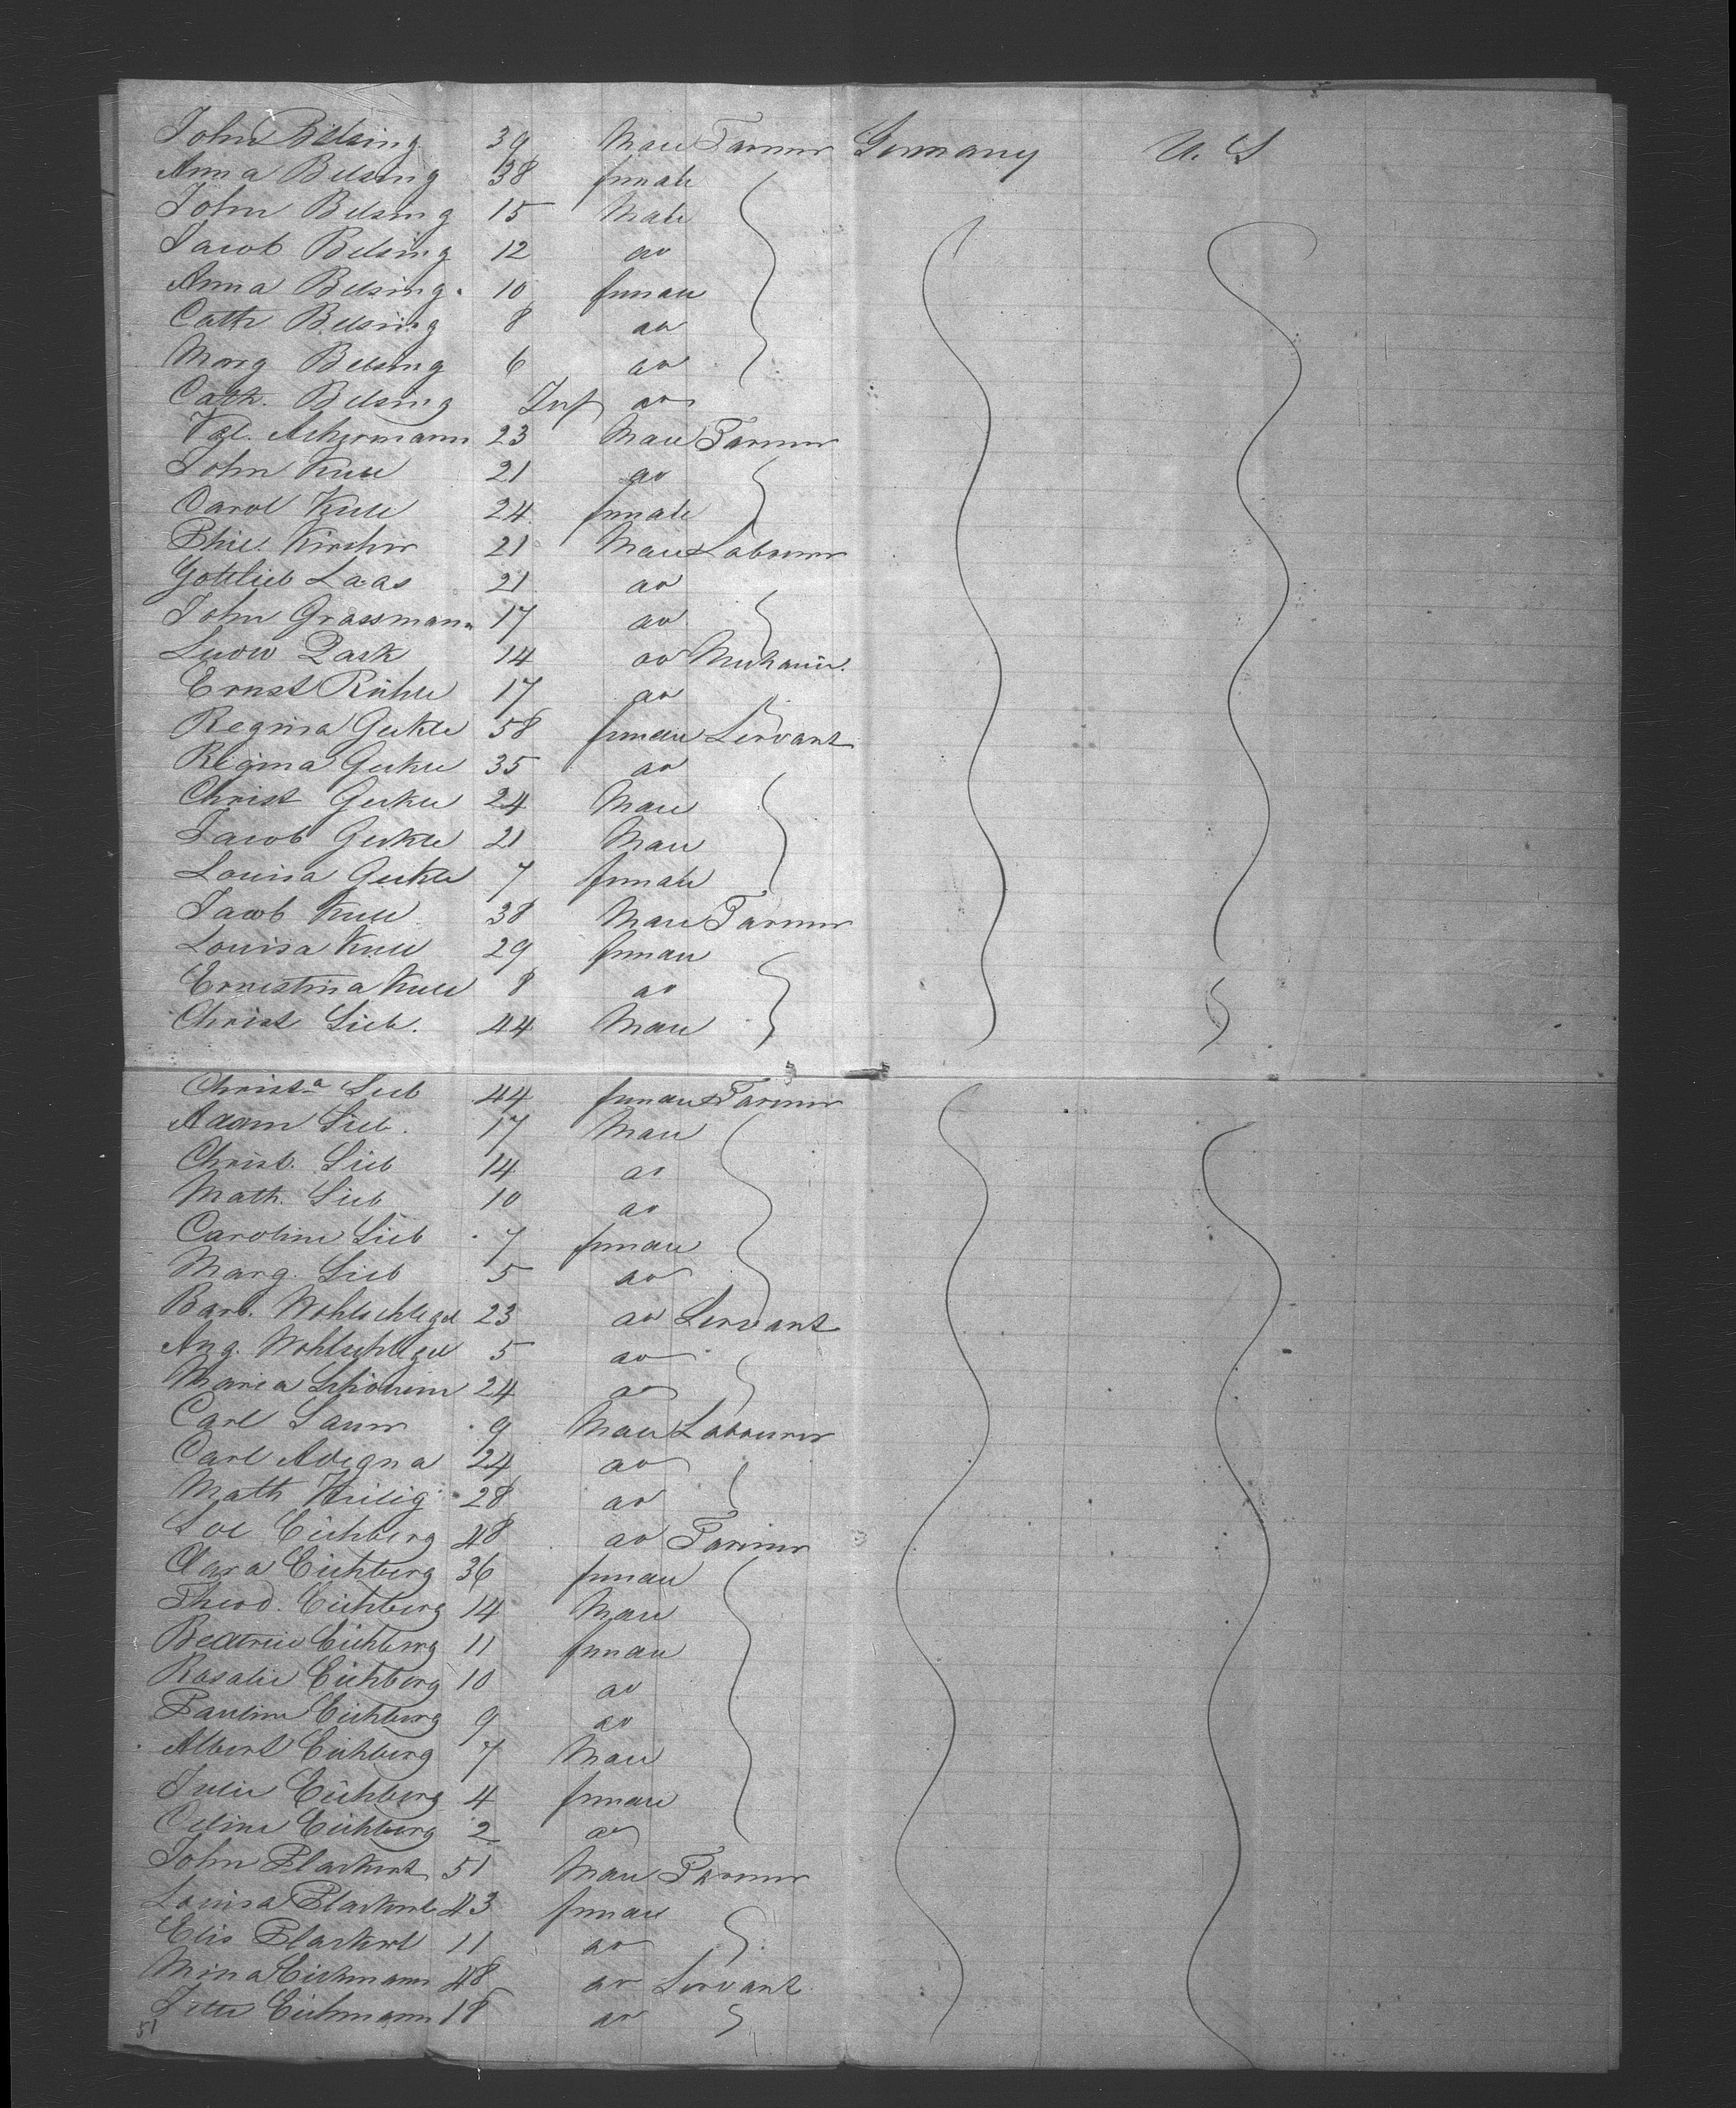 John Belsing 39 Male Farmer Germany U. S
Anna Belsing 38 female
John Belsing 15 Male
Jacob Belsing 12 do
Anna Belsing 10 female
Cath Belsing 8 do
Marg Belsing 6 do
Cath. Belsing Inf do
Val. Ackermann 23 Male Farmer
John Kull 21 do
Carol Kull 24 female
Phil. Kircher 21 Male Labourer
Gottlieb Laas 21 do
John Grassmann 17 do
Ludw 14 do Mechanic.
Ernst Rühle 17 do
Regina Geckle 58 female Servant
Regina Geckle 35 do
Christ Geckle 24 Male
Jacob Geckle 21 Male
Louisa Geckle 7 female
Jacob Kull 38 Male Farmer
Louisa Kull 29 female
Ernestina Kull 8 do
Christ Lieb. 44 Male
Christa Lieb 44 female Farmer
Adam Lieb. 17 Male
Christ. Lieb 14 do
Math. Lieb 10 do
Caroline Lieb 7 female
Marg. Lieb 5 do
Barb. Wohlschlegel 23 do Servant
Aug. Wohlschlegel 5 do
Maria 24 do
Carl Saur 9 Male Labourer
Carl 24 do
Math Heilig 28 do
Sol Eichberg 48 do Farmer
Clara Eichberg 36 female
Theod. Eichberg 14 Male
Beatrice Eichberg 11 female
Rosalie Eichberg 10 do
Pauline Eichberg 9 do
Albert Eichberg 7 Male
Julie Eichberg 4 female
Celine Eichberg 2 do
John Plackert 51 Male Farmer
Louisa Plackert 43 female
Elis Plackert 11 do
Mina Eichmann 48 do Servant
Jette Eichmann 18 do
51